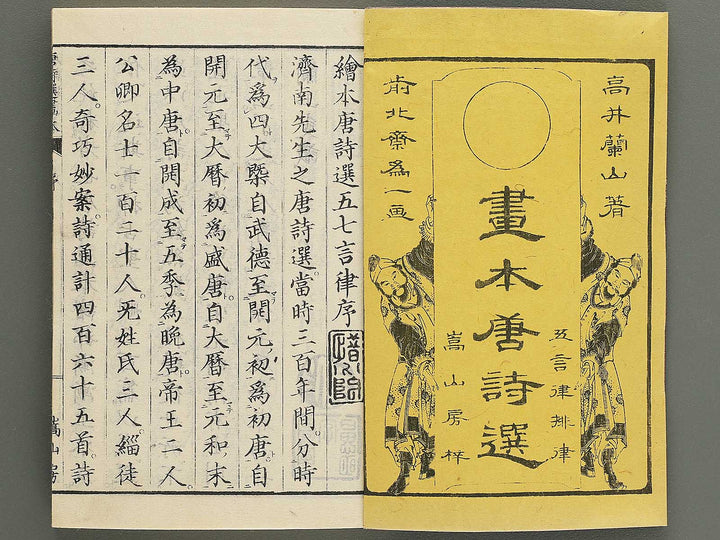 高井蘭山著
畫本唐詩選
五言律排律
嵩山房梓
前北齋爲一画
繪本唐詩選五七言律序
濟南先生之唐詩選當時三百年間分時
代爲四大槩自武德至開元初爲初唐自
開元至大曆初爲盛唐自大曆至元和末
為中唐自開成至五季為晩唐帝王二人
公卿名士一百二十人无姓氏三人緇徒
三人奇巧妙案詩通計四百六十五首詩
嵩山房